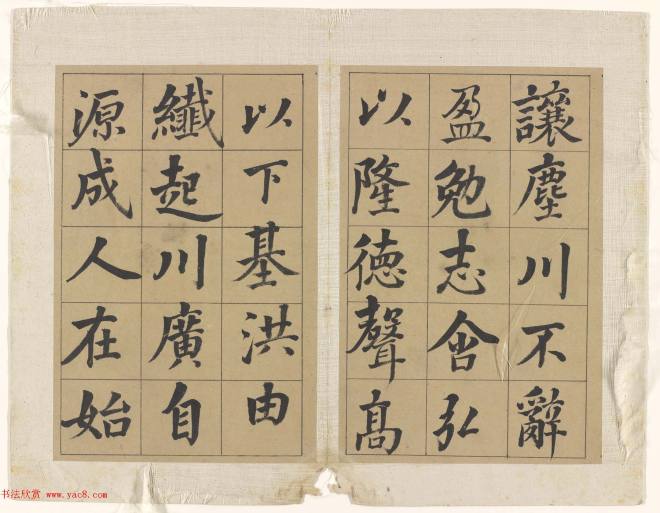 讓塵川不辭
盈勉志含弘
以隆德聲高
以下基洪由
纖起川廣自
源成人在始
书法欣赏 www.yac8.com